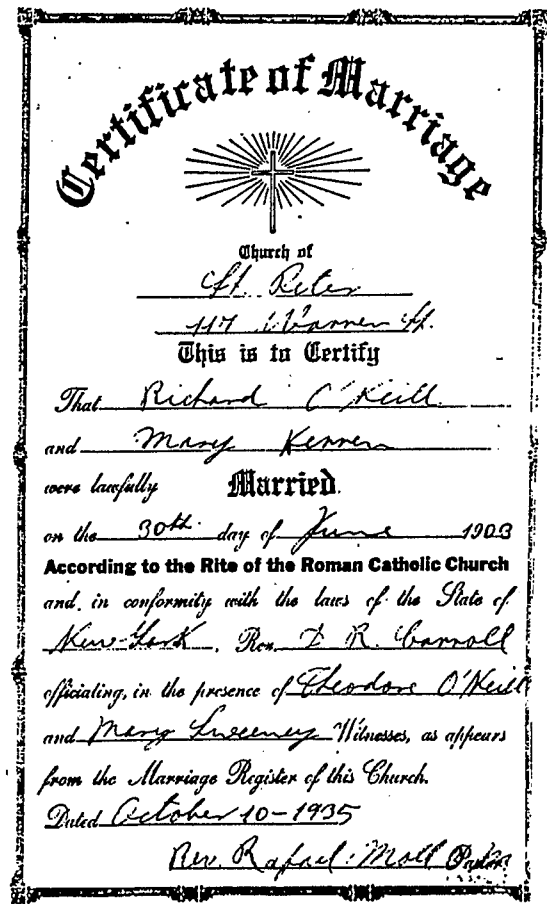 Certificate of Marriage
Church of
St. Peter
117 Warren St.
This is to Certify
That Richard O'Neill
and Mary
were lawfully Married.
on the 30th day of June 1903
According to the Rite of the Roman Catholic Church
and in conformity with the laws of the State of
New-York. Rev. R. Carroll
officiating, in the presence of Theodore O'Neill
and Mary Sweeney Witnesses, as appears
from the Marriage Register of this Church.
Dated October 10-1935
Rev. Rafael Moll Pastor